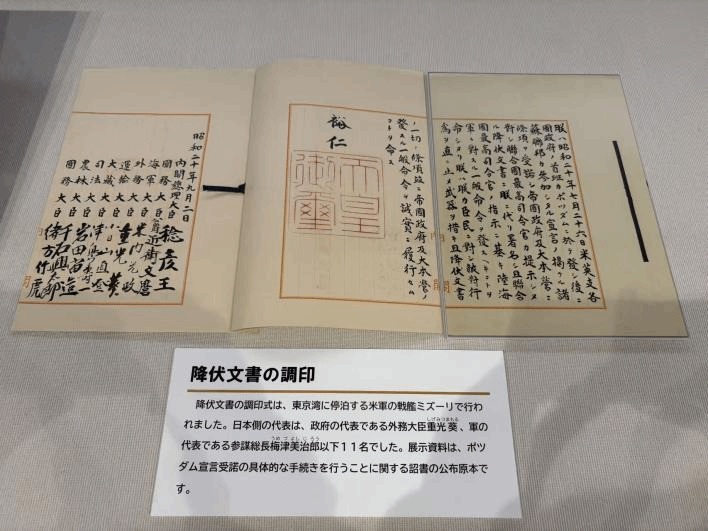 朕ハ昭和二十年七月二十六日米英支各
國政府ノ首班カポツダムニ於テ發シ後ニ
蘇聯邦カ參加シタル宣言ノ掲クル諸
條項ヲ受諾シ帝國政府及大本營ニ
對シ聯合國最高司令官カ提示シタ
ル降伏文書ニ朕ニ代リ署名シ且聯合
國最高司令官ノ指示ニ基キ陸海
軍ニ對スル一般命令ヲ發スヘキコトヲ
命シタリ朕ハ朕カ臣民ニ對シ敵對行
爲ヲ直ニ止メ武器ヲ措キ且降伏文書
ノ一切ノ條項竝ニ帝國政府及大本營ノ
發スル一般命令ヲ誠實ニ履行セム
コトヲ命ス
裕仁
天皇
御璽
昭和二十年九月二日
内閣總理大臣 稔彦王
國務大臣 公爵近衛文麿
海軍大臣 米内光政
外務大臣 重光葵
運輸大臣 小日山直登
大藏大臣 津島壽一
司法大臣 岩田宙造
農林大臣 千石興太郎
國務大臣 緒方竹虎
内閣
降伏文書の調印
降伏文書の調印式は、東京湾に停泊する米軍の戦艦ミズーリで行わ
れました。日本側の代表は、政府の代表である外務大臣重光葵、軍の
代表である参謀総長梅津美治郎以下11名でした。展示資料は、ポツ
ダム宣言受諾の具体的な手続きを行うことに関する詔書の公布原本で
す。